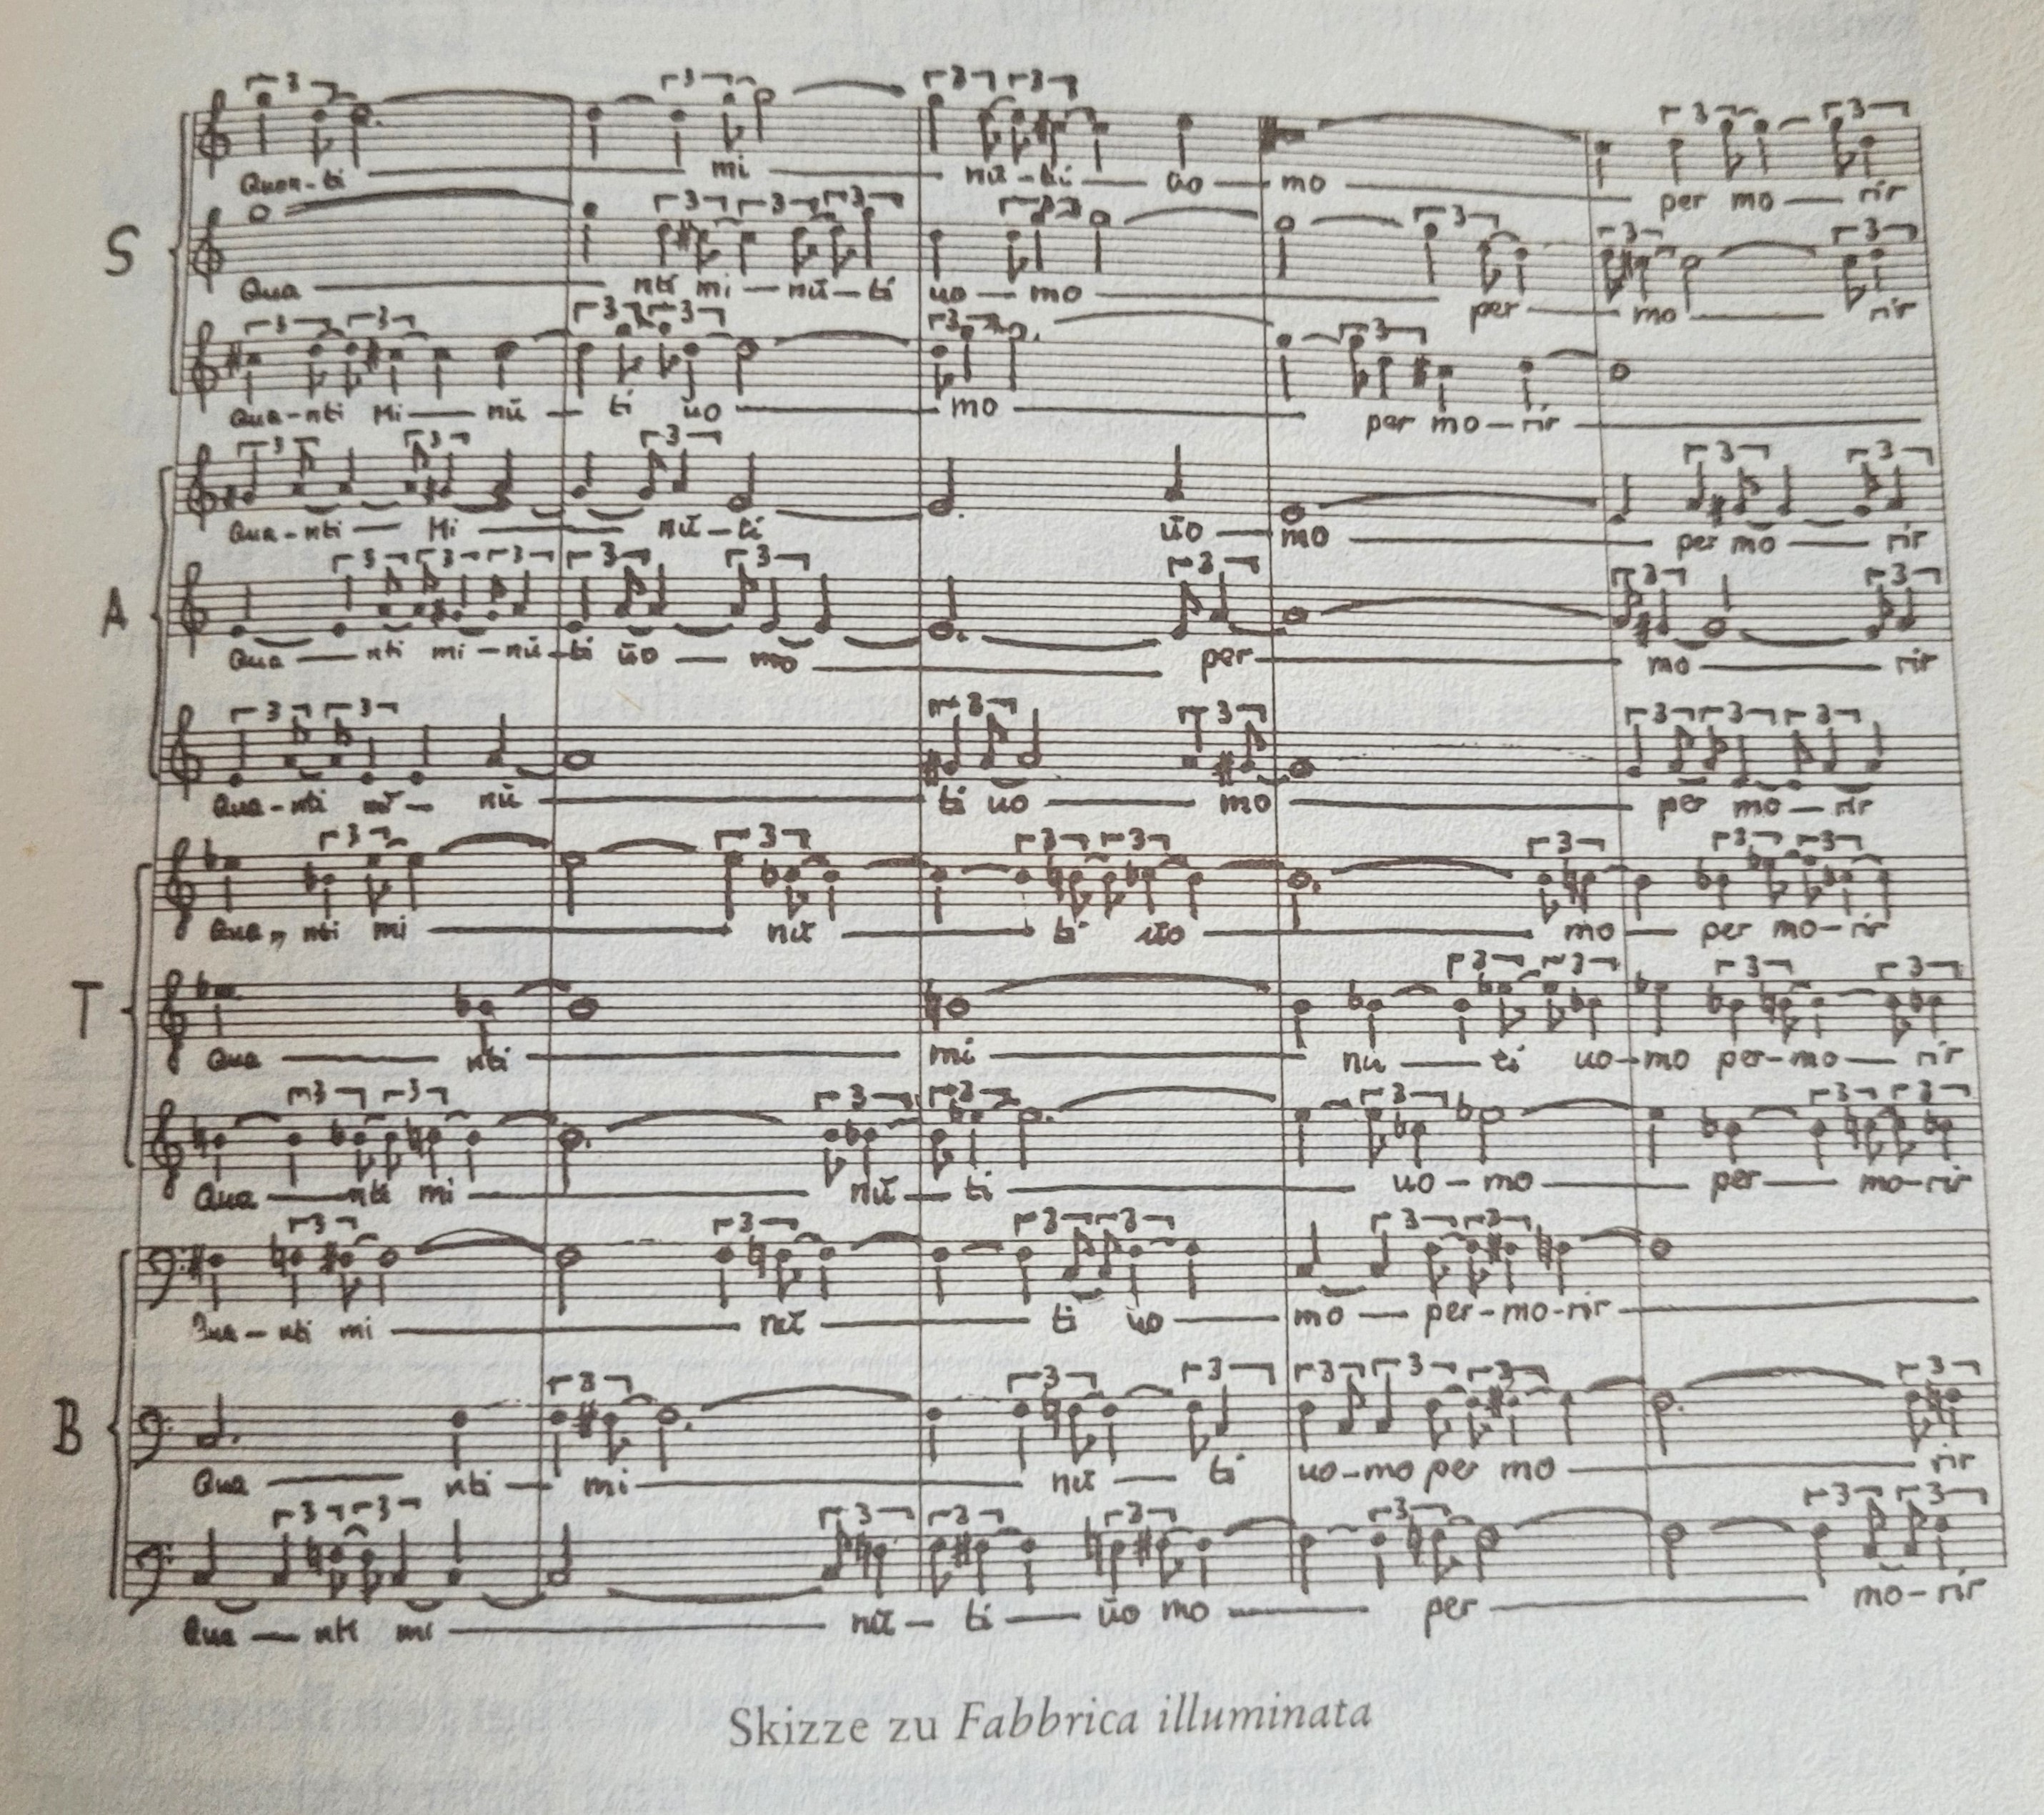 Quan-ti — mi — nū-ti — uo — mo — per mo — rir
S
Qua — nti mi — nū — ti uo — mo — per — mo — rir
Qua-nti Mi — nū — ti ūo — mo — per mo — rir
Qua-nti — Mi — nū — ti ūo — mo — per mo — rir
A
Qua — nti mi — nū — ti ūo — mo — per — mo — rir
Qua-nti mi — nū — ti uo — mo — per mo — rir
Qua, nti mi — nū — ti ūo — mo — per mo-rir
T
Qua — nti — mi — nu — ti uo-mo per-mo — rir
Qua — nti mi — nū — ti — uo-mo — per — mo-rir
Qua-nti mi — nū — ti ūo — mo — per-mo-rir
B
Qua — nti — mi — nū — ti uo-mo per mo — rir
Qua — nti mi — nū — ti — ūo mo — per — mo-rir
Skizze zu Fabbrica illuminata